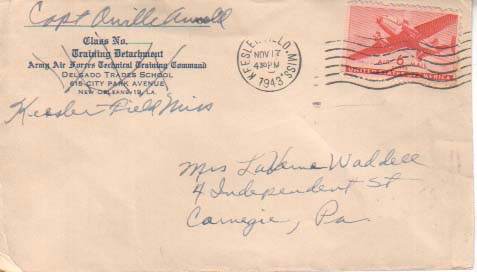 Capt Orville
Class No.
Training Detachment
Army Air Forces Technical Training Command
DELGADO TRADES SCHOOL
615 CITY PARK AVENUE
NEW ORLEANS 19, LA.
Keesler Field Miss
KEESLER FLD., MISS.
NOV 17
4 30 PM
1943
6¢
UNITED STATES OF AMERICA
Mrs LaVerne Waddell
4 Independent St
Carnegie, Pa.